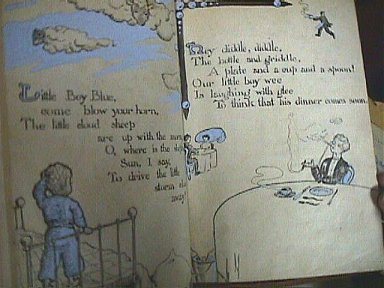 Little Boy Blue,
come blow your horn,
The little cloud sheep
are up with the morn,
O, where is the
Sun, I say,
To drive the little
storm
away?
Hey diddle, diddle,
The bottle and griddle,
A plate and a cup and a spoon!
Our little boy wee
Is laughing with glee
To think that his dinner comes soon.